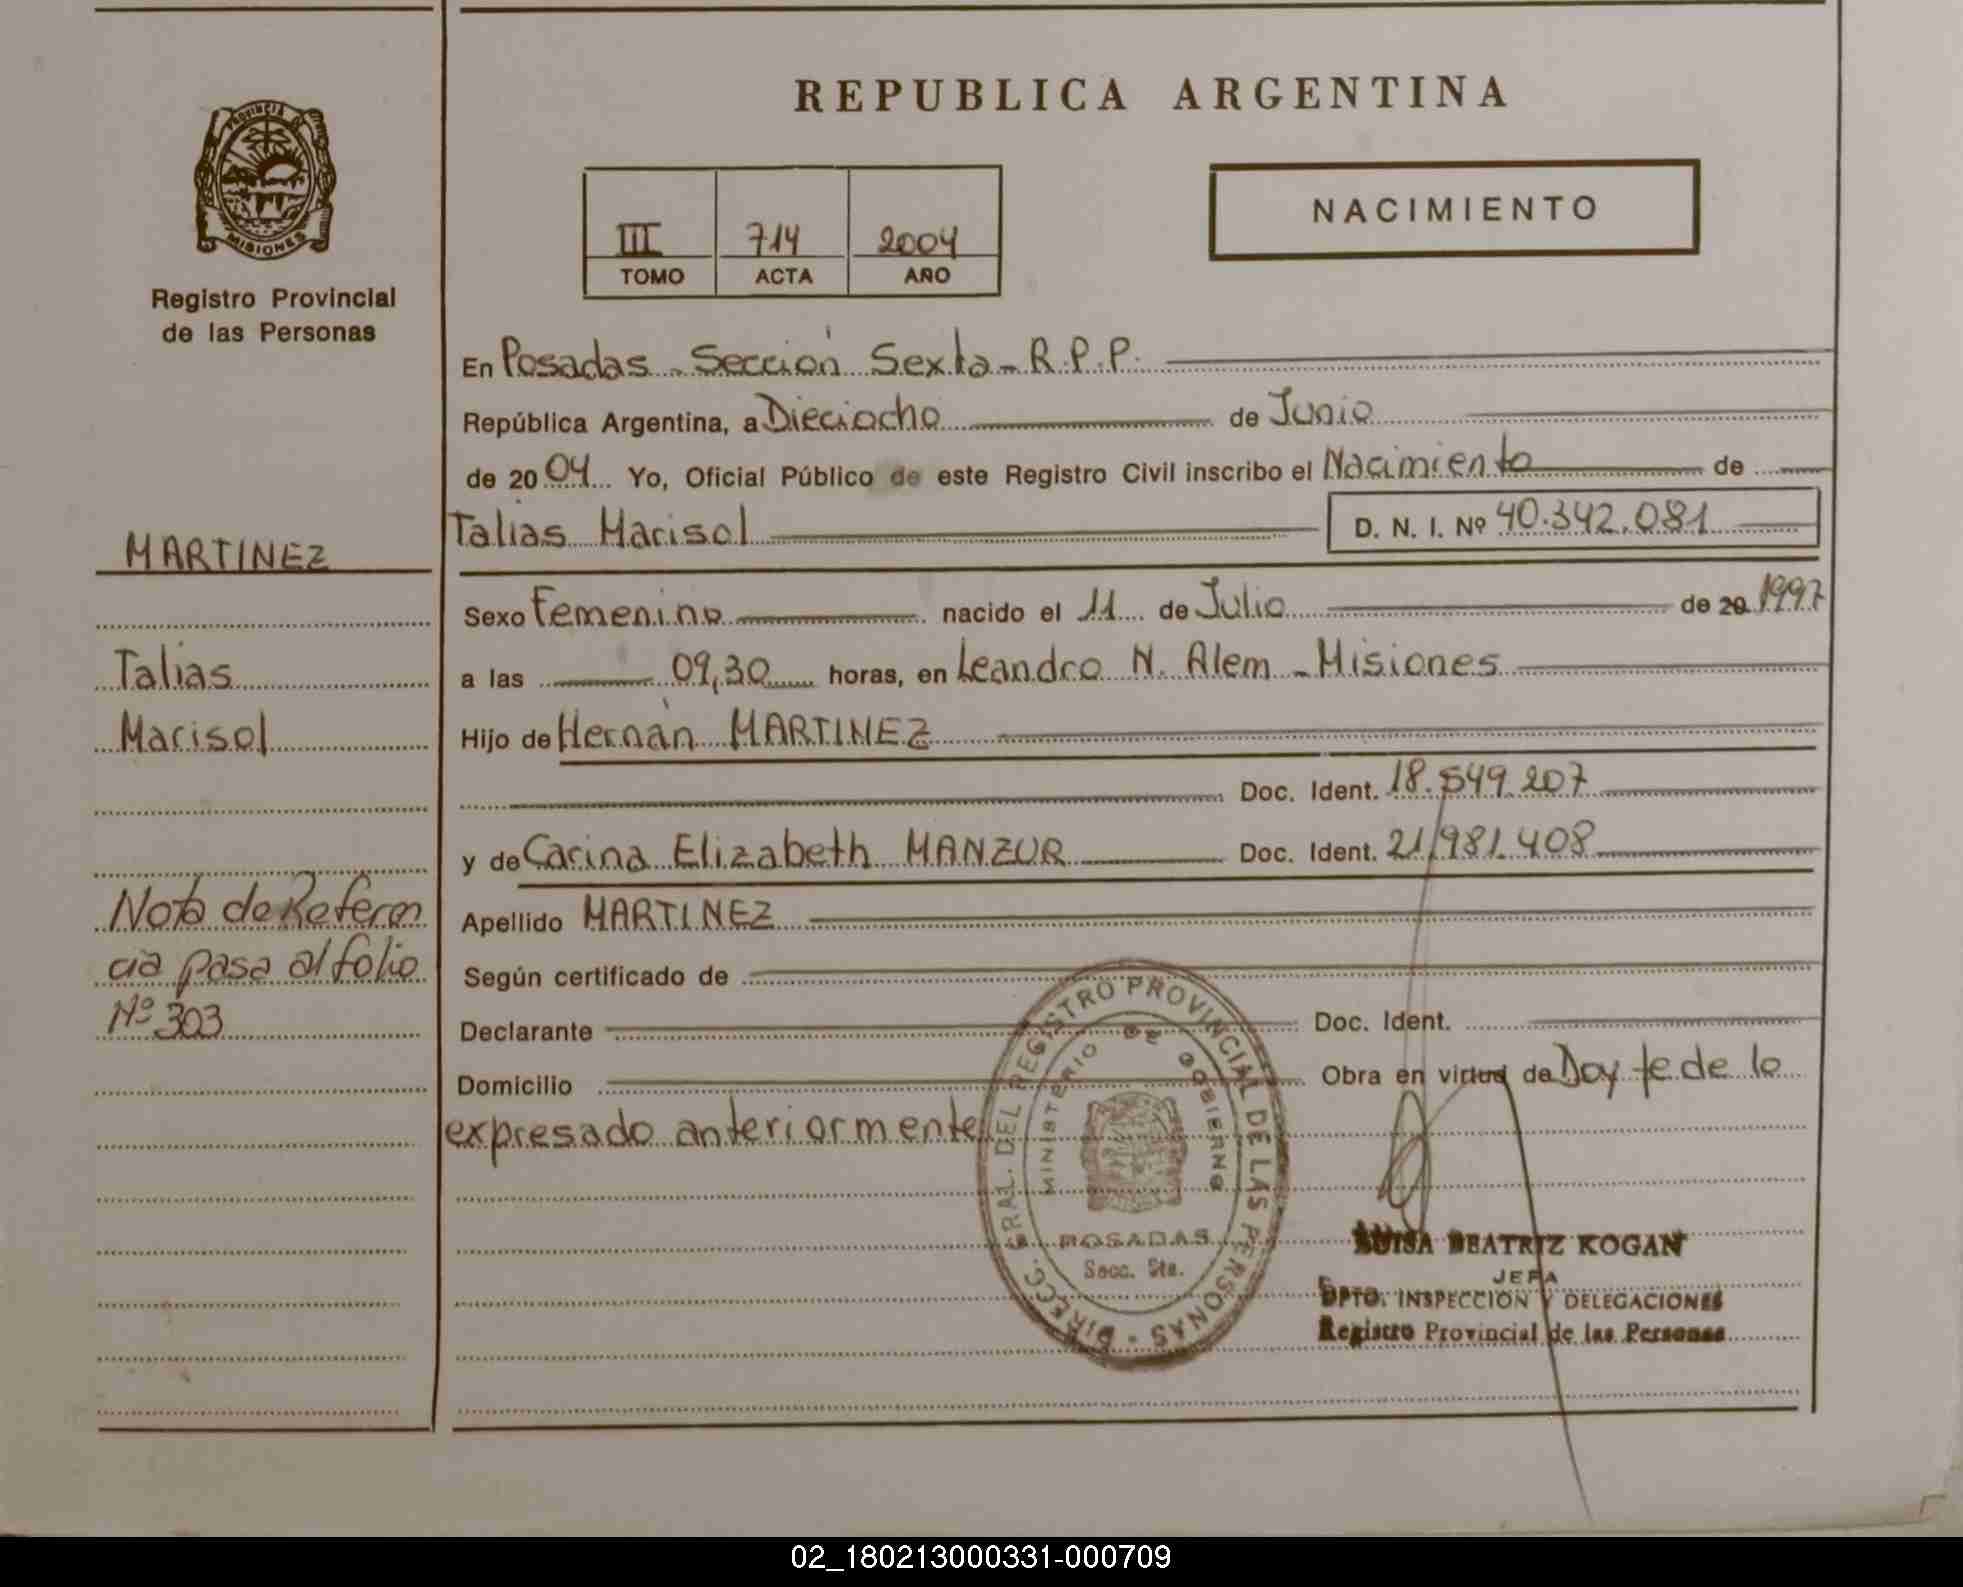 REPUBLICA ARGENTINA
PROVINCIA DE
MISIONES
Registro Provincial
de las Personas
III 714 2004
TOMO ACTA AÑO
NACIMIENTO
En Posadas - Sección Sexta - R.P.P.
República Argentina, a Dieciocho de Junio
de 2004 Yo, Oficial Público de este Registro Civil inscribo el Nacimiento de
Talias Marisol D. N. I. Nº 40.342.081
MARTINEZ
Sexo Femenino nacido el 11 de Julio de 20 1997
Talias
a las 09,30 horas, en Leandro N. Alem - Misiones
Marisol
Hijo de Hernán MARTINEZ
Doc. Ident. 18.549.207
y de Carina Elizabeth MANZUR Doc. Ident. 21.981.408
Nota de Referen
cia pasa al folio
Nº 303
Apellido MARTINEZ
Según certificado de
Declarante Doc. Ident.
Domicilio Obra en virtud de Doy fe de lo
expresado anteriormente
DIRECC. GRAL. DEL REGISTRO PROVINCIAL DE LAS PERSONAS
MINISTERIO DE GOBIERNO
POSADAS
Secc. 6ta.
LUISA BEATRIZ KOGAN
JEFA
DPTO. INSPECCION Y DELEGACIONES
Registro Provincial de las Personas
02_180213000331-000709